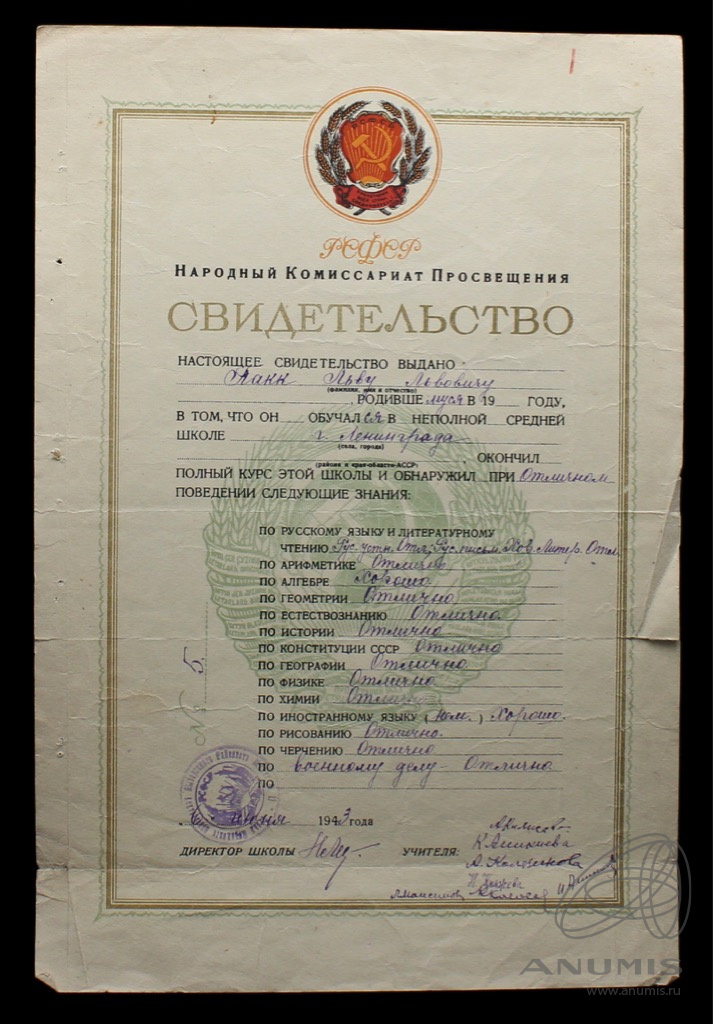 РСФСР
НАРОДНЫЙ КОМИССАРИАТ ПРОСВЕЩЕНИЯ
СВИДЕТЕЛЬСТВО
НАСТОЯЩЕЕ СВИДЕТЕЛЬСТВО ВЫДАНО
Льву Львовичу
(фамилия, имя и отчество)
, РОДИВШЕмуся В 19 ГОДУ,
В ТОМ, ЧТО ОН ОБУЧАЛся В НЕПОЛНОЙ СРЕДНЕЙ
ШКОЛЕ г. Ленинграда
(села, города)
, ОКОНЧИЛ
(района и края-области-АССР)
ПОЛНЫЙ КУРС ЭТОЙ ШКОЛЫ И ОБНАРУЖИЛ ПРИ Отличном
ПОВЕДЕНИИ СЛЕДУЮЩИЕ ЗНАНИЯ:
ПО РУССКОМУ ЯЗЫКУ И ЛИТЕРАТУРНОМУ
ЧТЕНИЮ Рус. устн. Отл. Рус. письм. Хор. Литер. Отл.
ПО АРИФМЕТИКЕ Отлично
ПО АЛГЕБРЕ Хорошо
ПО ГЕОМЕТРИИ Отлично
ПО ЕСТЕСТВОЗНАНИЮ Отлично.
ПО ИСТОРИИ Отлично
ПО КОНСТИТУЦИИ СССР Отлично
ПО ГЕОГРАФИИ Отлично
ПО ФИЗИКЕ Отлично
ПО ХИМИИ Отлично
ПО ИНОСТРАННОМУ ЯЗЫКУ ( ) Хорошо.
ПО РИСОВАНИЮ Отлично.
ПО ЧЕРЧЕНИЮ Отлично
ПО военному делу - Отлично
ПО
№ 5
июня 1943 года
ДИРЕКТОР ШКОЛЫ
УЧИТЕЛЯ:
ANUMIS
www.anumis.ru